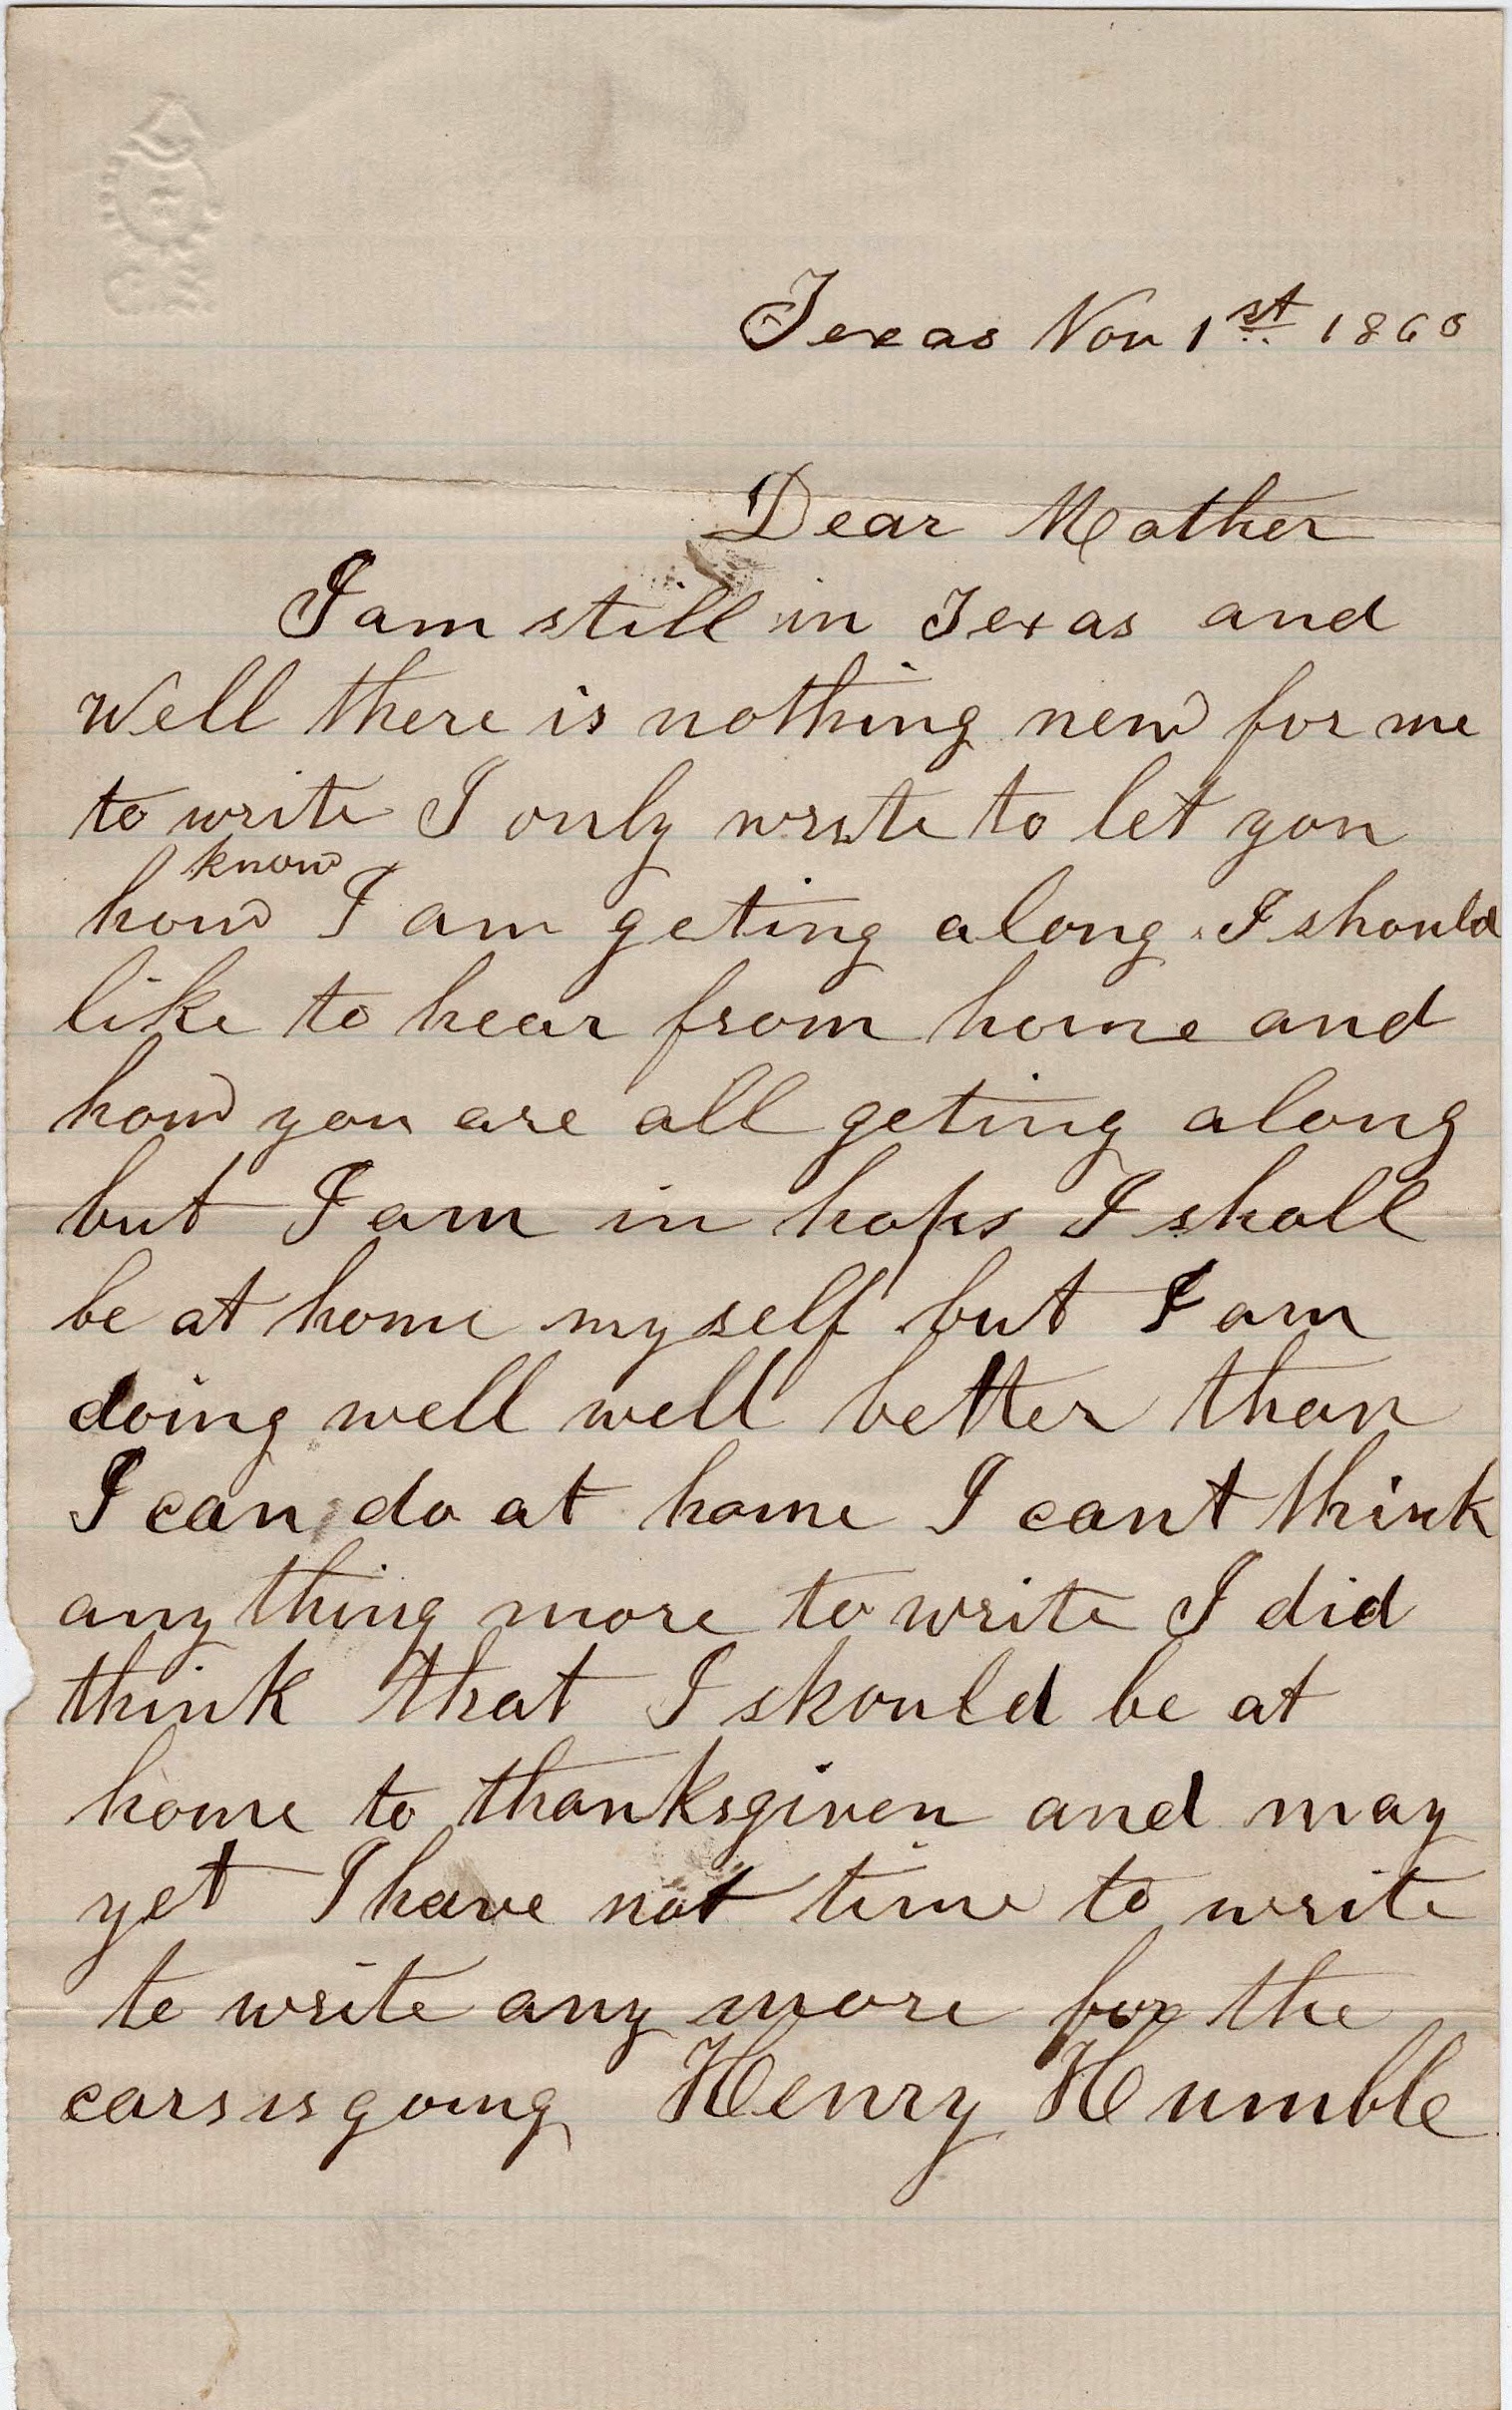 Texas Nov 1st 1868
Dear Mother
I am still in Texas and
well there is nothing new for me
to write I only write to let you
know
how I am geting along. I should
like to hear from home and
how you are all geting along
but I am in hops I shall
be at home myself but I am
doing well well better than
I can do at home I cant think
any thing more to write I did
think that I should be at
home to thanksgiven and may
yet I have not time to write
to write any more for the
cars is going Henry Humble